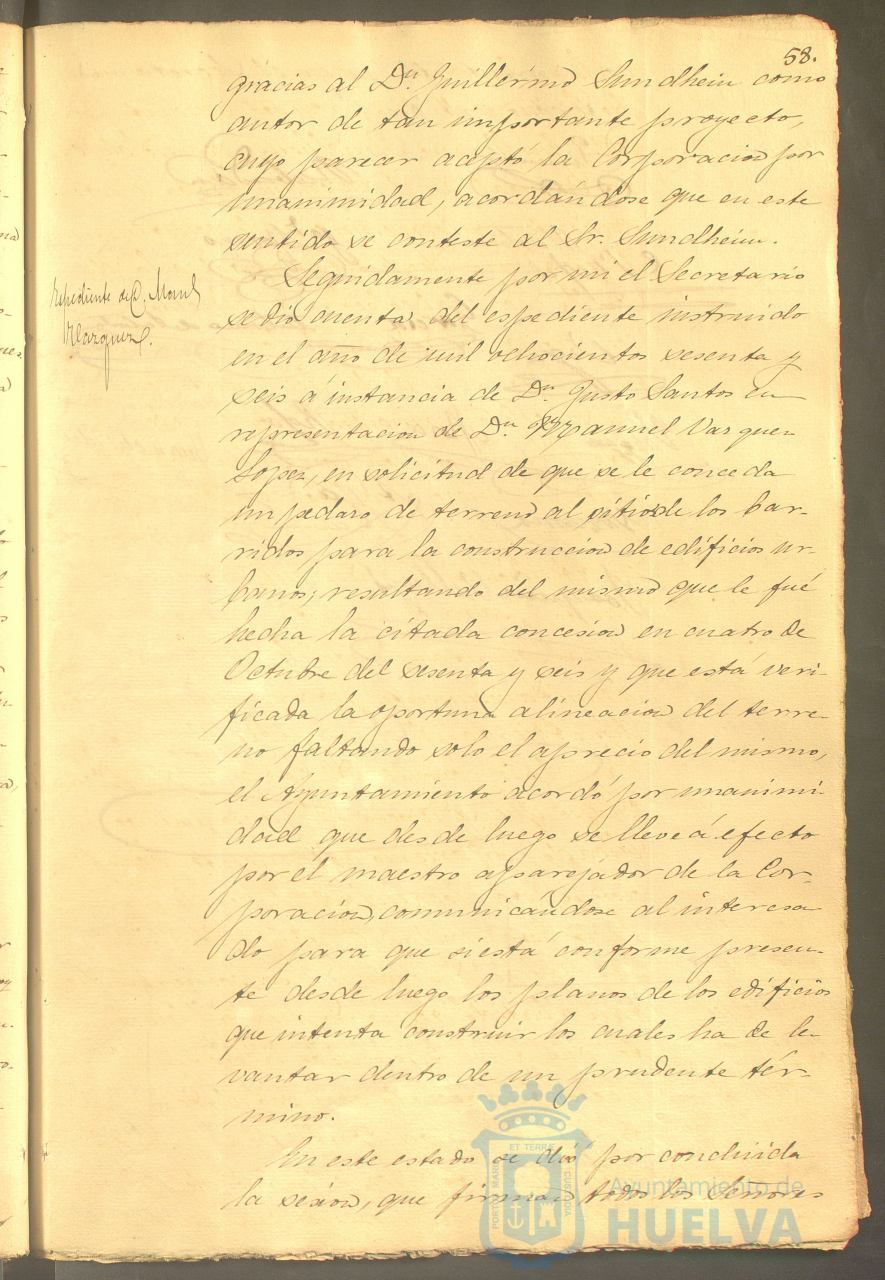 58.
gracias al Dn. Guillermo Sundheim como
autor de tan importante proyecto,
cuyo parecer aceptó la Corporacion por
unanimidad, acordándose que en este
sentido se conteste al Sr. Sundheim.
Espediente de D. Manl
Vazquez.
Seguidamente por mi el Secretario
se dió cuenta del espediente instruido
en el año de mil ochocientos sesenta y
seis á instancia de Dn. Justo Santos en
representacion de Dn. Manuel Vazquez
Lopez, en solicitud de que se le conceda
un pedazo de terreno al sitio de los bar-
ridos para la construccion de edificios ur-
banos; resultando del mismo que le fué
hecha la citada concesion en cuatro de
Octubre del sesenta y seis y que está veri-
ficada la oportuna alineacion del terre-
no faltando solo el aprecio del mismo,
el Ayuntamiento acordó por unanimi-
dad que desde luego se lleve á efecto
por el maestro aparejador de la Cor-
poracion, comunicándose al interesa
do para que si está conforme presen-
te desde luego los planos de los edificios
que intenta construir los cuales ha de le-
vantar dentro de un prudente tér-
mino.
En este estado se dió por concluida
la sesion, que firman todos los Señores
PORTUS MARIS
ET TERRÆ
CUSTODIA
Ayuntamiento de
HUELVA